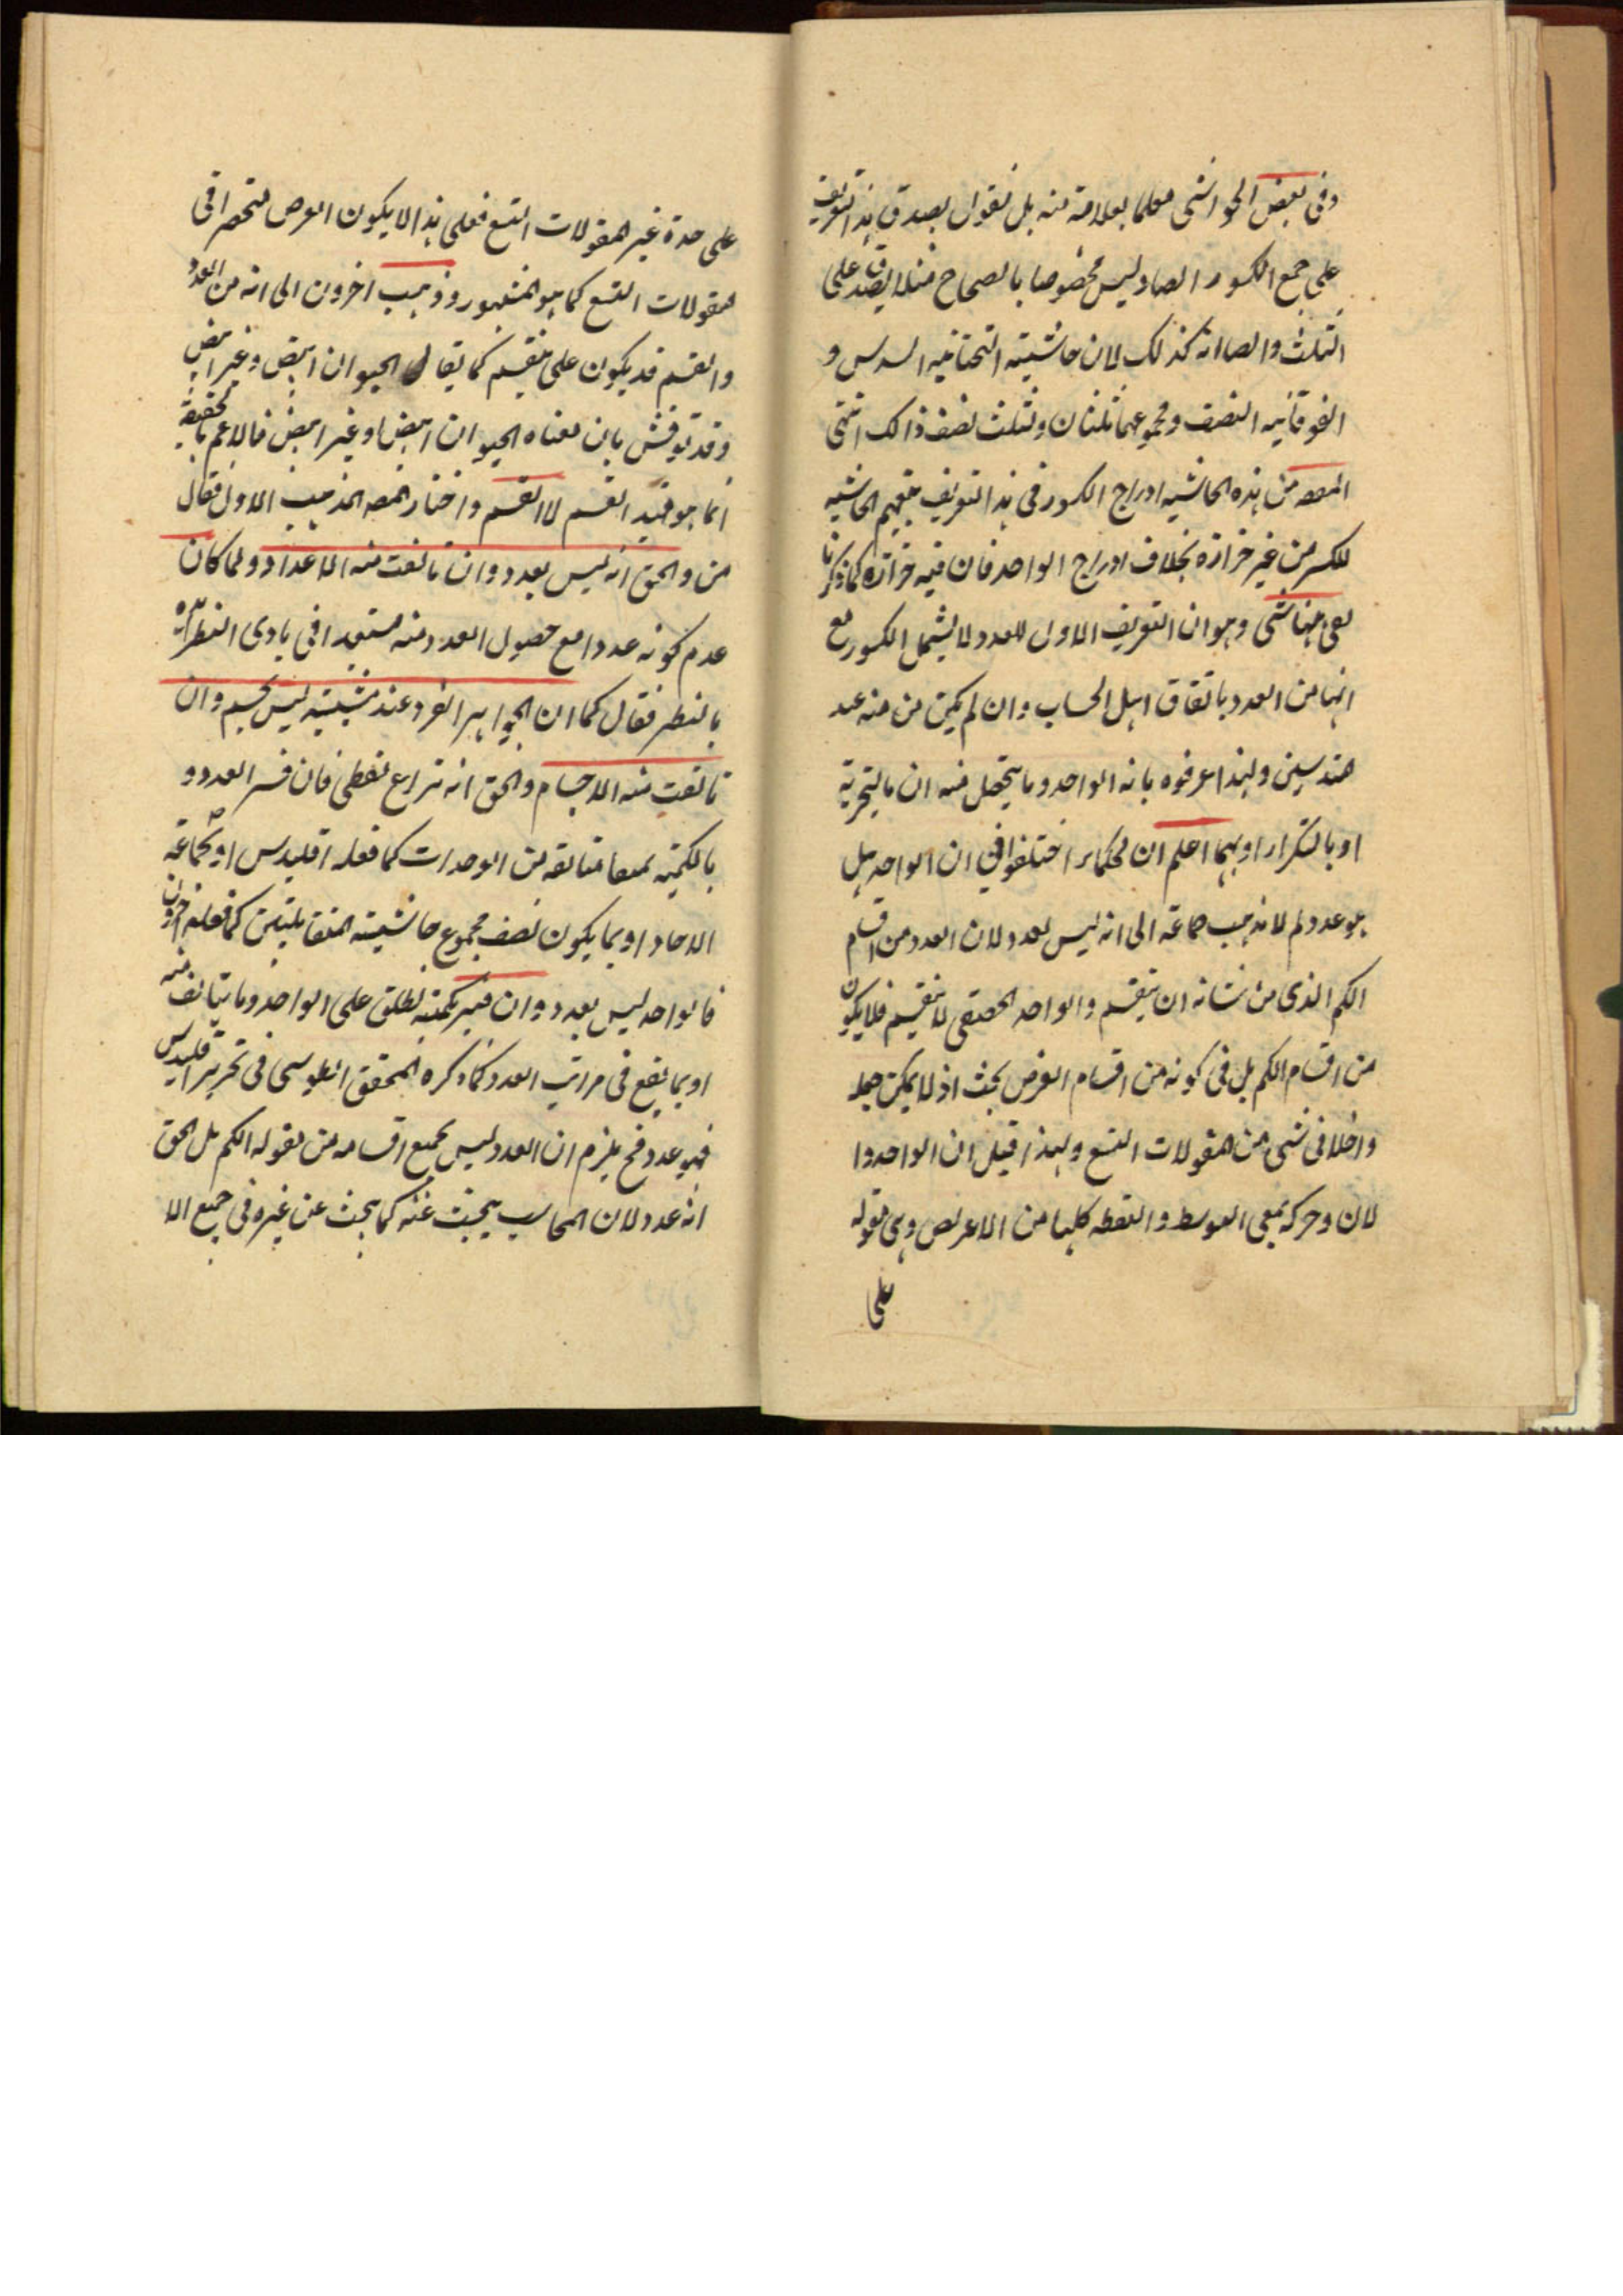 وفى بعض الحواشى معلما بعلامة منه بل نقول يصدق هذا التعريف
على جمع الكسور ايضا وليس مخصوصا بالصحاح مثلا يصدق على
الثلث والصا انه كذلك لان حاشيته التحتانيه السدس و
الفوقانيه النصف ومجموعهما ثلثان وثلث نصف ذالك انتهى
المصه من هذه الحاشيه ادراج الكسور فى هذا التعريف بتعميم الحاشيه
للكسر من غير حزازة بخلاف ادراج الواحد فان فيه حزازة كما ذكرنا
بقى ههنا شئ وهو ان التعريف الاول للعدد لا يشمل الكسور مع
انها من العدد باتفاق اهل الحساب وان لم يكن من منه عند
هندسين ولهذا عرفوه بانه الواحد وما يتحصل منه ان بالتجزية
او بالتكرار او بهما اعلم ان لحكماء اختلفوا فى ان الواحد هل
هو عدد لم لا فذهب جماعة الى انه ليس بعدد لان العدد من اقسام
الكم الذى من شانه ان ينقسم والواحد الحقيقى لا ينقسم فلا يكون
من اقسام الكم بل فى كونه من اقسام العرض بحث اذ لا يمكن جعله
داخلا فى شئ من المقولات التسع ولهذا قيل ان الواحد وا
لان وحركة بمعنى التوسط والنقطه كلها من الاعراض وهى مقولة
على
على حدة غير المقولات التسع فعلى هذا لا يكون العرض منحصرا فى
لمقولات التسع كما هو المشهور وذهب اخرون الى انه من العدد
والقسم قد يكون على منقسم كما يقال الحيوان ابيض وغير ابيض
وقد نوقش بان معناه الحيوان ابيض او غير ابيض فالاعم بالحقيقة
انما هو قيد القسم لا القسم واختار المصه المذهب الاول فقال
من والحق انه ليس بعدد وان تالفت منه الاعداد ولما كان
عدم كونه عددا مع حصول العدد منه مستبعدا فى بادى النظر
بالنظر فقال كما ان الجواهر الفرد عند مثبتيه ليس بجسم وان
تالفت منه الاجسام والحق انه نزاع لفظى فان فسر العدد
بالكمية لمعا متالفه من الوحدات كما فعله اقليدس او بجماعة
الاحاد او بما يكون نصف مجموع حاشيته المتقابلتين كما فعله اخرون
فالواحد ليس بعدد وان فسر بكمية يطلق على الواحد وما يتالف منه
او بما يقع فى مراتب العدد كما ذكره المحقق الطوسى فى تحرير اقليدس
فهو عدد فح يلزم ان العدد ليس بجميع اقسامه من مقولة الكم بل الحق
انه عدد لان المحاسب يبحث عنه كما يبحث عن غيره فى جميع الا